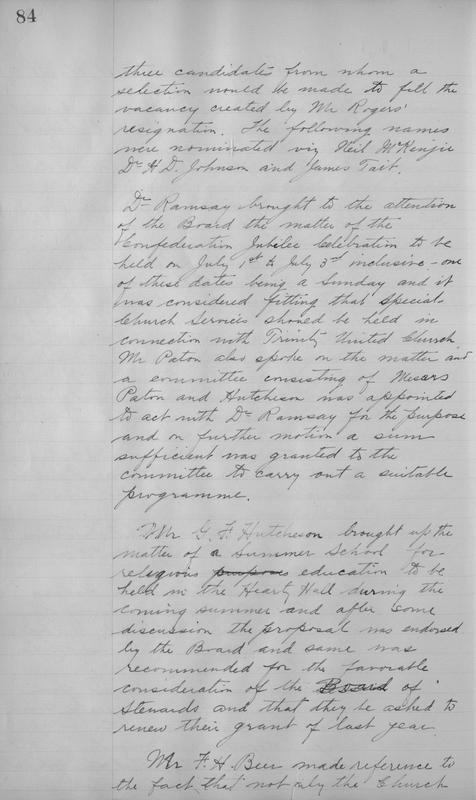 84
three candidates from whom a
selection would be made to fill the
vacancy created by Mr Rogers'
resignation. The following names
were nominated viz Neil McKenzie
Dr H. D. Johnson and James Tait.
Dr Ramsay brought to the attention
of the Board the matter of the
Confederation Jubilee Celebration to be
held on July 1st to July 3rd inclusive - one
of these dates being a Sunday and it
was considered fitting that special
Church Services should be held in
connection with Trinity United Church.
Mr Paton also spoke on the matter and
a committee consisting of Messrs
Paton and Hutcheson was appointed
to act with Dr Ramsay for the purpose
and on further motion a sum
sufficient was granted to the
committee to carry out a suitable
programme.
Mr G. F. Hutcheson brought up the
matter of a Summer School for
religious purposes education to be
held in the Heartz Hall during the
coming summer and after some
discussion the proposal was endorsed
by the Board and same was
recommended for the favorable
consideration of the Board of
Stewards and that they be asked to
renew their grant of last year.
Mr F. H. Beer made reference to
the fact that not only the Church